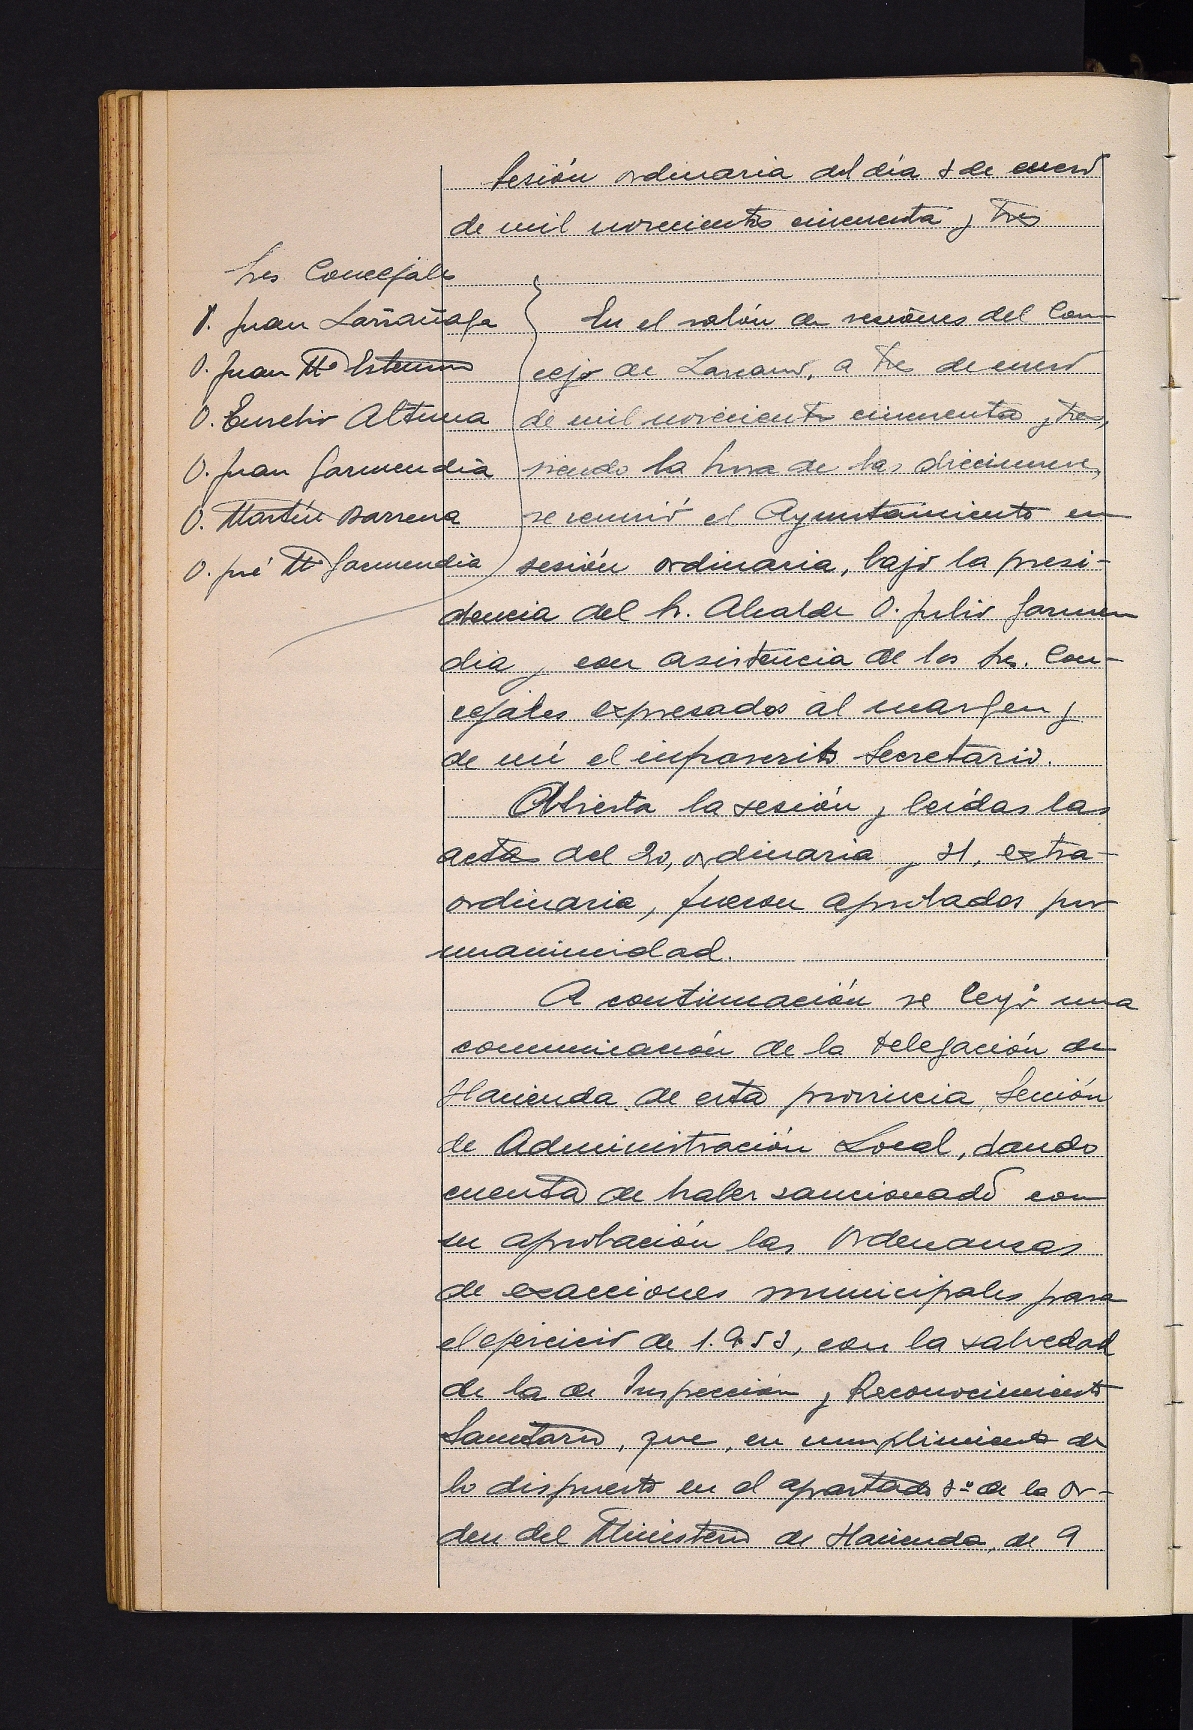 Sesión ordinaria del día 3 de enero
de mil novecientos cincuenta y tres
Sres Concejales
D. Juan Larrañaga
D. Juan Mª
D. Eusebio Altuna
D. Juan Garmendia
D. Martín Barrena
D. José Mª Garmendia
En el salón de sesiones del Con-
cejo de Lazcano, a tres de enero
de mil novecientos cincuenta y tres,
siendo la hora de las diecinueve,
se reunió el Ayuntamiento en
sesión ordinaria, bajo la presi-
dencia del Sr. Alcalde D. Julio Garmen
dia y con asistencia de los Srs. Con-
cejales expresados al margen y
de mí el infrascrito Secretario.
Abierta la sesión y leídas las
actas del 20, ordinaria y 31, extra-
ordinaria, fueron aprobados por
unanimidad.
A continuación se leyó una
comunicación de la Delegación de
Hacienda de esta provincia, Sección
de Administración Local, dando
cuenta de haber sancionado con
su aprobación las Ordenanzas
de exacciones municipales para
el ejercicio de 1.953, con la salvedad
de la de Inspección y Reconocimiento
Sanitario, que, en cumplimiento de
lo dispuesto en el apartado 3º de la Or-
den del Ministerio de Hacienda, de 9